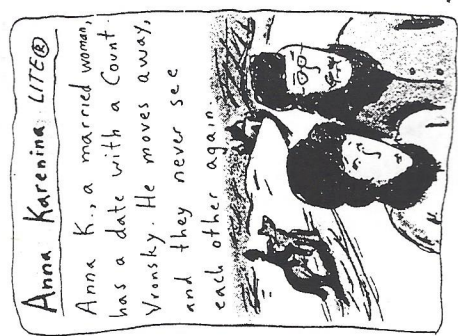 Anna Karenina LITE®
Anna K., a married woman,
has a date with a Count
Vronsky. He moves away,
and they never see
each other again.